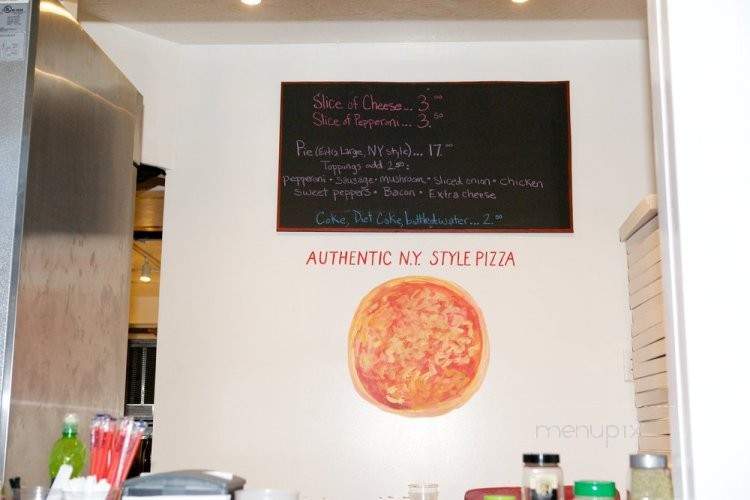 Slice of Cheese... 3.00
Slice of Pepperoni... 3.50
Pie (Extra Large, NY style)... 17.00
Toppings add 2.50:
pepperoni • sausage • mushroom • sliced onion • chicken
sweet peppers • Bacon • Extra cheese
Coke, Diet Coke, bottled water... 2.00
AUTHENTIC N.Y. STYLE PIZZA
menupix